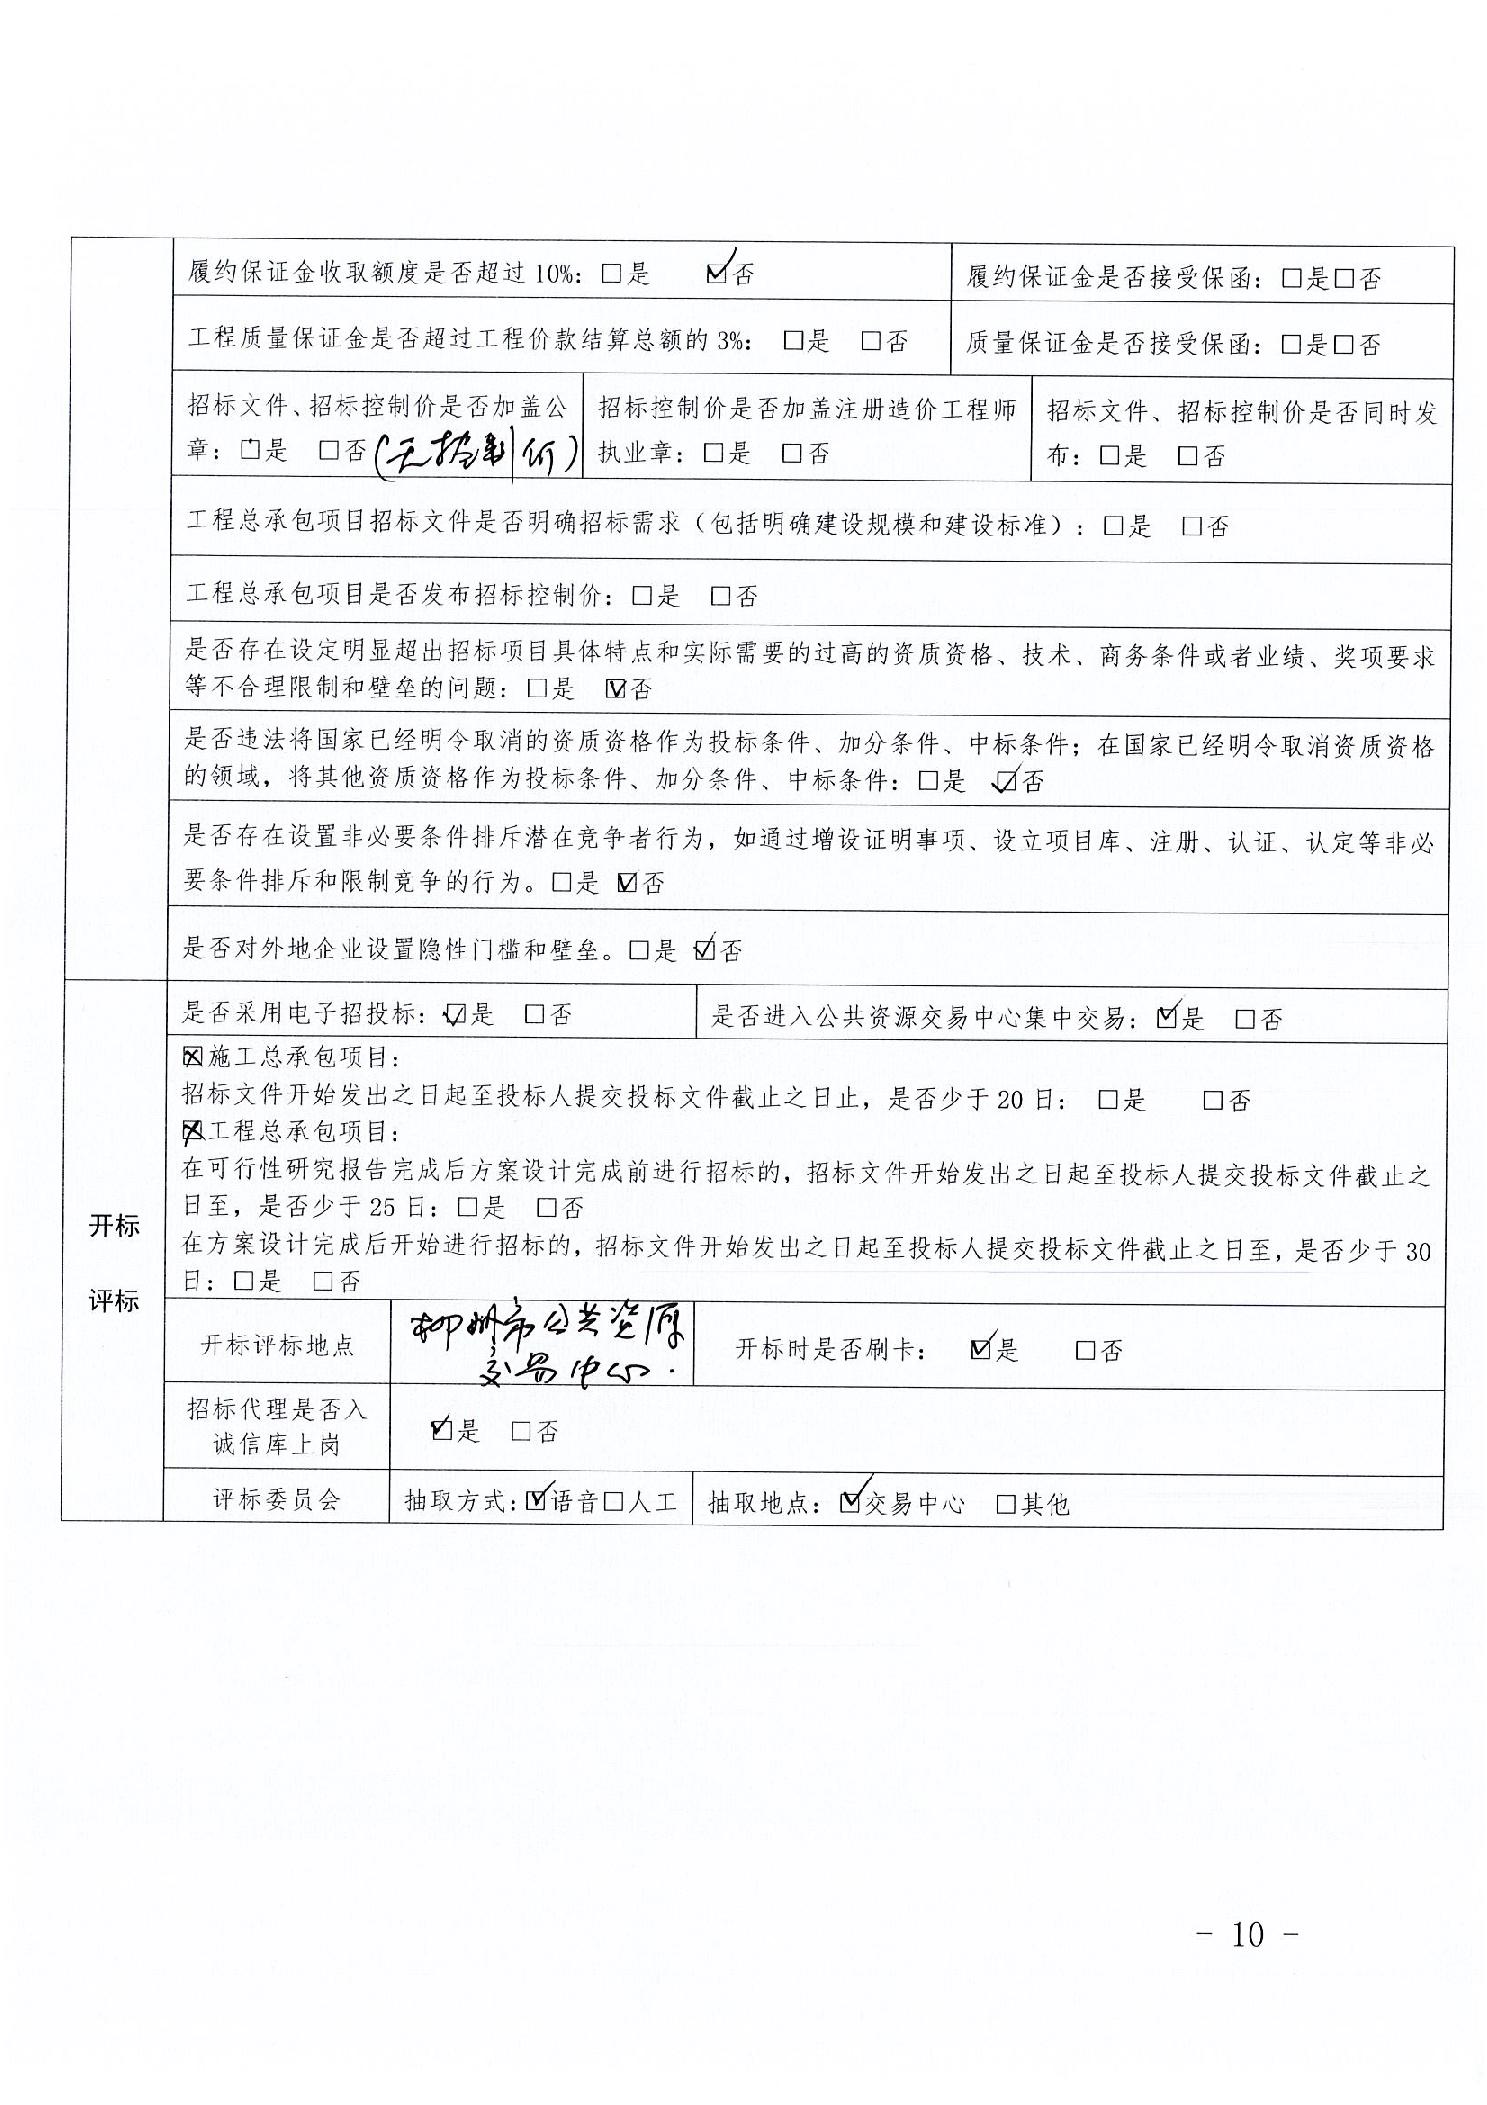 履约保证金收取额度是否超过10%：□是 ☑否
履约保证金是否接受保函：□是□否
工程质量保证金是否超过工程价款结算总额的3%： □是 □否
质量保证金是否接受保函：□是□否
招标文件、招标控制价是否加盖公
章：□是 □否(无控制价)
招标控制价是否加盖注册造价工程师
执业章：□是 □否
招标文件、招标控制价是否同时发
布：□是 □否
工程总承包项目招标文件是否明确招标需求（包括明确建设规模和建设标准）：□是 □否
工程总承包项目是否发布招标控制价：□是 □否
是否存在设定明显超出招标项目具体特点和实际需要的过高的资质资格、技术、商务条件或者业绩、奖项要求
等不合理限制和壁垒的问题：□是 ☑否
是否违法将国家已经明令取消的资质资格作为投标条件、加分条件、中标条件；在国家已经明令取消资质资格
的领域，将其他资质资格作为投标条件、加分条件、中标条件：□是 ☑否
是否存在设置非必要条件排斥潜在竞争者行为，如通过增设证明事项、设立项目库、注册、认证、认定等非必
要条件排斥和限制竞争的行为。□是 ☑否
是否对外地企业设置隐性门槛和壁垒。□是 ☑否
开标
评标
是否采用电子招投标：☑是 □否
是否进入公共资源交易中心集中交易：☑是 □否
☒施工总承包项目：
招标文件开始发出之日起至投标人提交投标文件截止之日止，是否少于20日： □是 □否
☒工程总承包项目：
在可行性研究报告完成后方案设计完成前进行招标的，招标文件开始发出之日起至投标人提交投标文件截止之
日至，是否少于25日：□是 □否
在方案设计完成后开始进行招标的，招标文件开始发出之日起至投标人提交投标文件截止之日至，是否少于30
日：□是 □否
开标评标地点
柳州市公共资源
交易中心.
开标时是否刷卡： ☑是 □否
招标代理是否入
诚信库上岗
☑是 □否
评标委员会
抽取方式：☑语音□人工
抽取地点：☑交易中心 □其他
- 10 -